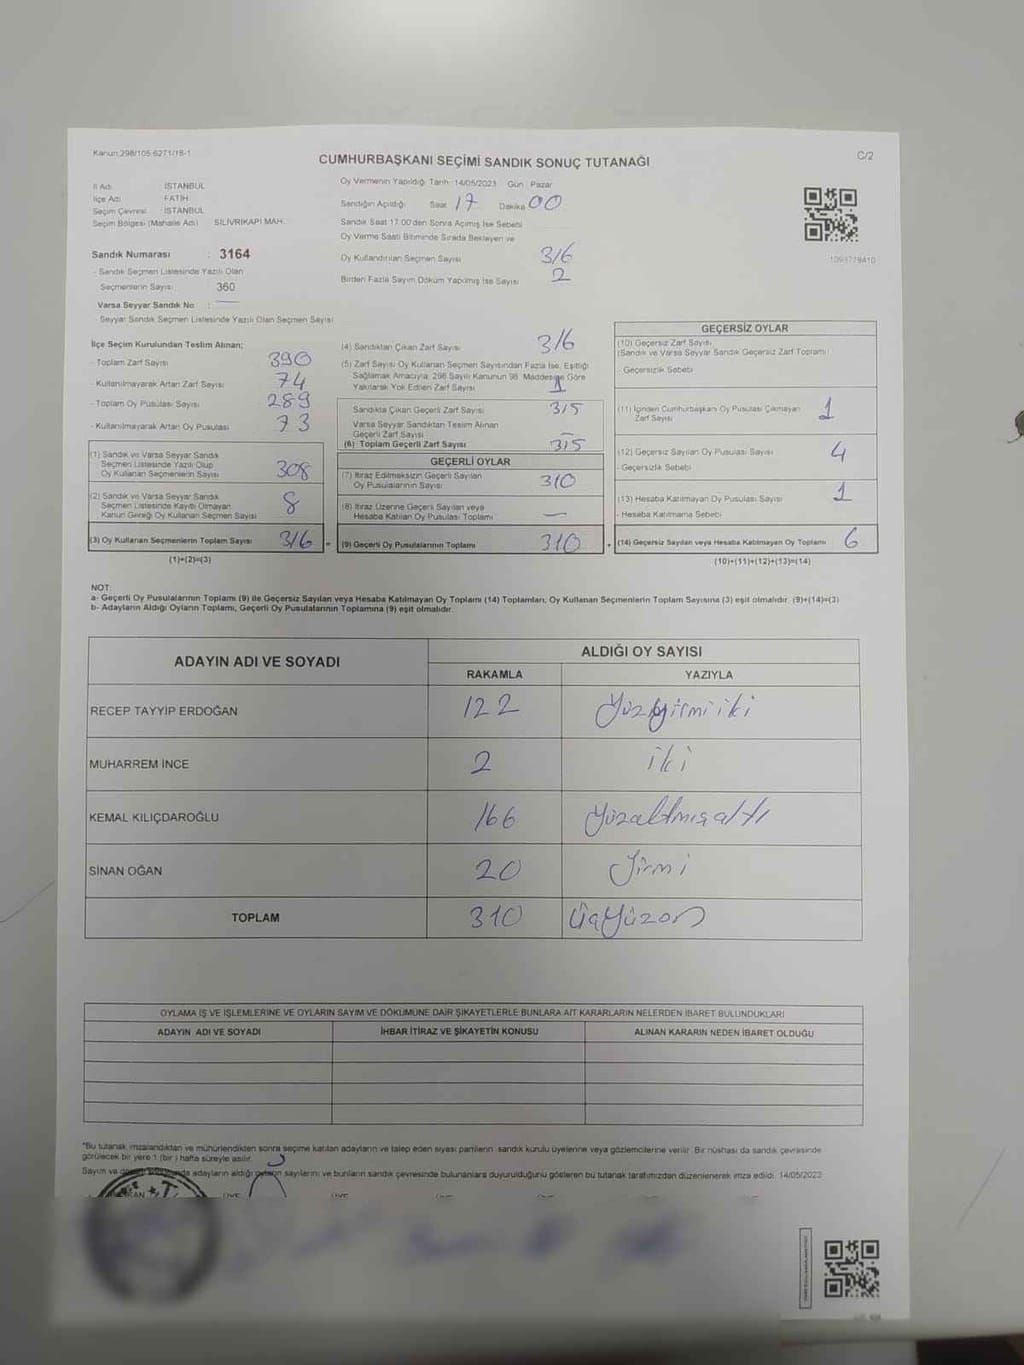 Kanun:298/105-6271/18-1
C/2
CUMHURBAŞKANI SEÇİMİ SANDIK SONUÇ TUTANAĞI
İl Adı : İSTANBUL
İlçe Adı : FATİH
Seçim Çevresi : İSTANBUL
Seçim Bölgesi (Mahalle Adı) : SİLİVRİKAPI MAH.
Sandık Numarası : 3164
- Sandık Seçmen Listesinde Yazılı Olan
Seçmenlerin Sayısı 360
Varsa Seyyar Sandık No :
- Seyyar Sandık Seçmen Listesinde Yazılı Olan Seçmen Sayısı
Oy Vermenin Yapıldığı Tarih :14/05/2023 Gün : Pazar
Sandığın Açıldığı Saat 17 Dakika 00
Sandık Saat 17.00'den Sonra Açılmış İse Sebebi
Oy Verme Saati Bitiminde Sırada Bekleyen ve
Oy Kullandırılan Seçmen Sayısı 316
Birden Fazla Sayım Döküm Yapılmış İse Sayısı 2
1093779410
İlçe Seçim Kurulundan Teslim Alınan;
- Toplam Zarf Sayısı 390
- Kullanılmayarak Artan Zarf Sayısı 74
- Toplam Oy Pusulası Sayısı 289
- Kullanılmayarak Artan Oy Pusulası 73
(1) Sandık ve Varsa Seyyar Sandık
Seçmen Listesinde Yazılı Olup
Oy Kullanan Seçmenlerin Sayısı 308
(2) Sandık ve Varsa Seyyar Sandık
Seçmen Listesinde Kayıtlı Olmayan
Kanun Gereği Oy Kullanan Seçmen Sayısı 8
(3) Oy Kullanan Seçmenlerin Toplam Sayısı 316 =
(1)+(2)=(3)
(4) Sandıktan Çıkan Zarf Sayısı 316
(5) Zarf Sayısı Oy Kullanan Seçmen Sayısından Fazla İse, Eşitliği
Sağlamak Amacıyla, 298 Sayılı Kanunun 98. Maddesine Göre
Yakılarak Yok Edilen Zarf Sayısı 1
Sandıkta Çıkan Geçerli Zarf Sayısı 315
Varsa Seyyar Sandıktan Teslim Alınan
Geçerli Zarf Sayısı —
(6) Toplam Geçerli Zarf Sayısı 315
GEÇERLİ OYLAR
(7) İtiraz Edilmeksizin Geçerli Sayılan
Oy Pusulalarının Sayısı 310
(8) İtiraz Üzerine Geçerli Sayılan veya
Hesaba Katılan Oy Pusulası Toplamı —
(9) Geçerli Oy Pusulalarının Toplamı 310 +
GEÇERSİZ OYLAR
(10) Geçersiz Zarf Sayısı
(Sandık ve Varsa Seyyar Sandık Geçersiz Zarf Toplamı)
- Geçersizlik Sebebi
(11) İçinden Cumhurbaşkanı Oy Pusulası Çıkmayan
Zarf Sayısı 1
(12) Geçersiz Sayılan Oy Pusulası Sayısı 4
- Geçersizlik Sebebi
(13) Hesaba Katılmayan Oy Pusulası Sayısı 1
- Hesaba Katılmama Sebebi
(14) Geçersiz Sayılan veya Hesaba Katılmayan Oy Toplamı 6
(10)+(11)+(12)+(13)=(14)
NOT:
a- Geçerli Oy Pusulalarının Toplamı (9) ile Geçersiz Sayılan veya Hesaba Katılmayan Oy Toplamı (14) Toplamları, Oy Kullanan Seçmenlerin Toplam Sayısına (3) eşit olmalıdır. (9)+(14)=(3)
b- Adayların Aldığı Oyların Toplamı, Geçerli Oy Pusulalarının Toplamına (9) eşit olmalıdır.
ADAYIN ADI VE SOYADI
ALDIĞI OY SAYISI
RAKAMLA YAZIYLA
RECEP TAYYİP ERDOĞAN 122 Yüzyirmiiki
MUHARREM İNCE 2 iki
KEMAL KILIÇDAROĞLU 166 Yüzaltmışaltı
SİNAN OĞAN 20 Yirmi
TOPLAM 310 ÜçYüzon
OYLAMA İŞ VE İŞLEMLERİNE VE OYLARIN SAYIM VE DÖKÜMÜNE DAİR ŞİKAYETLERLE BUNLARA AİT KARARLARIN NELERDEN İBARET BULUNDUKLARI
ADAYIN ADI VE SOYADI İHBAR İTİRAZ VE ŞİKAYETİN KONUSU ALINAN KARARIN NEDEN İBARET OLDUĞU
*Bu tutanak imzalandıktan ve mühürlendikten sonra seçime katılan adayların ve talep eden siyasi partilerin sandık kurulu üyelerine veya gözlemcilerine verilir. Bir nüshası da sandık çevresinde
görülecek bir yere 1 (bir ) hafta süreyle asılır.
Sayım ve adayların aldığı oyların sayılarını ve bunların sandık çevresinde bulunanlara duyurulduğunu gösteren bu tutanak tarafımızdan düzenlenerek imza edildi. 14/05/2023